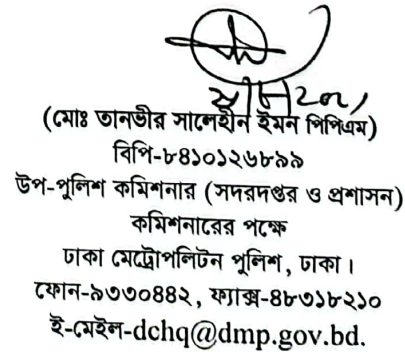 (মোঃ তানভীর সালেহীন ইমন পিপিএম)
বিপি-৮৪১০১২৬৮৯৯
উপ-পুলিশ কমিশনার (সদরদপ্তর ও প্রশাসন)
কমিশনারের পক্ষে
ঢাকা মেট্রোপলিটন পুলিশ, ঢাকা।
ফোন-৯৩৩০৪৪২, ফ্যাক্স-৪৮৩১৮২১০
ই-মেইল-dchq@dmp.gov.bd.